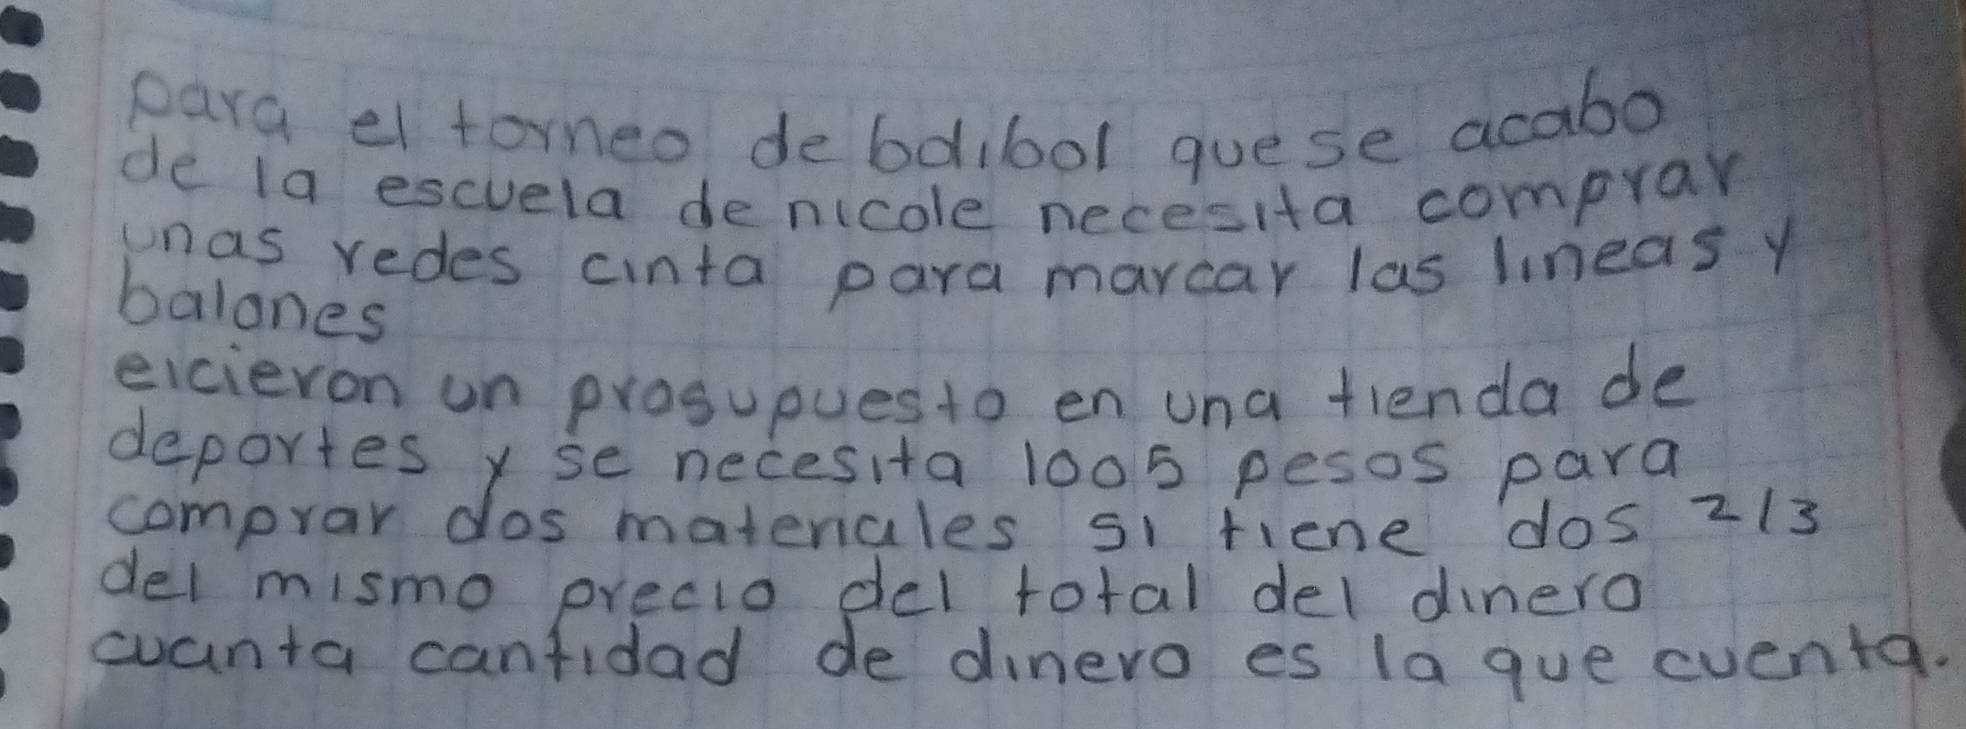 para el torneo de bolibol quese acabo
de la escuela de nicole necesita comprar
unas redes cinta para marcar las lineas y
balones
eicieron un prosupuesto en una tienda de
deportes y se necesita 1005 pesos para
comprar dos materiales si tiene dos 2/3
del mismo precio del total del dinero
cuanta cantidad de dinero es la que cuenta.